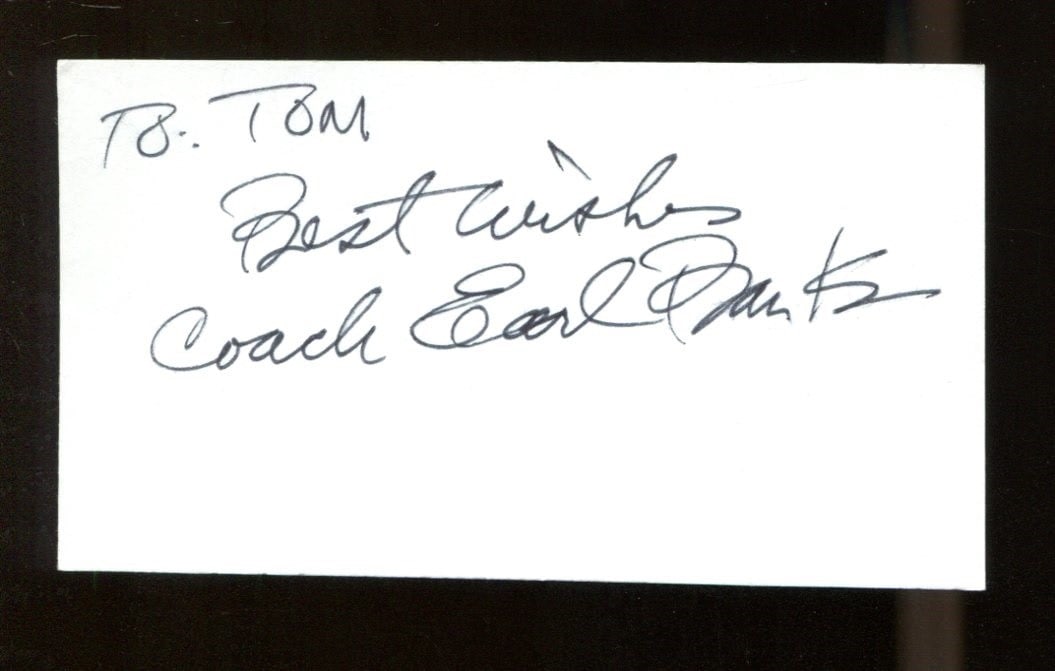 To: Tom
Best Wishes
Coach Earl Banks